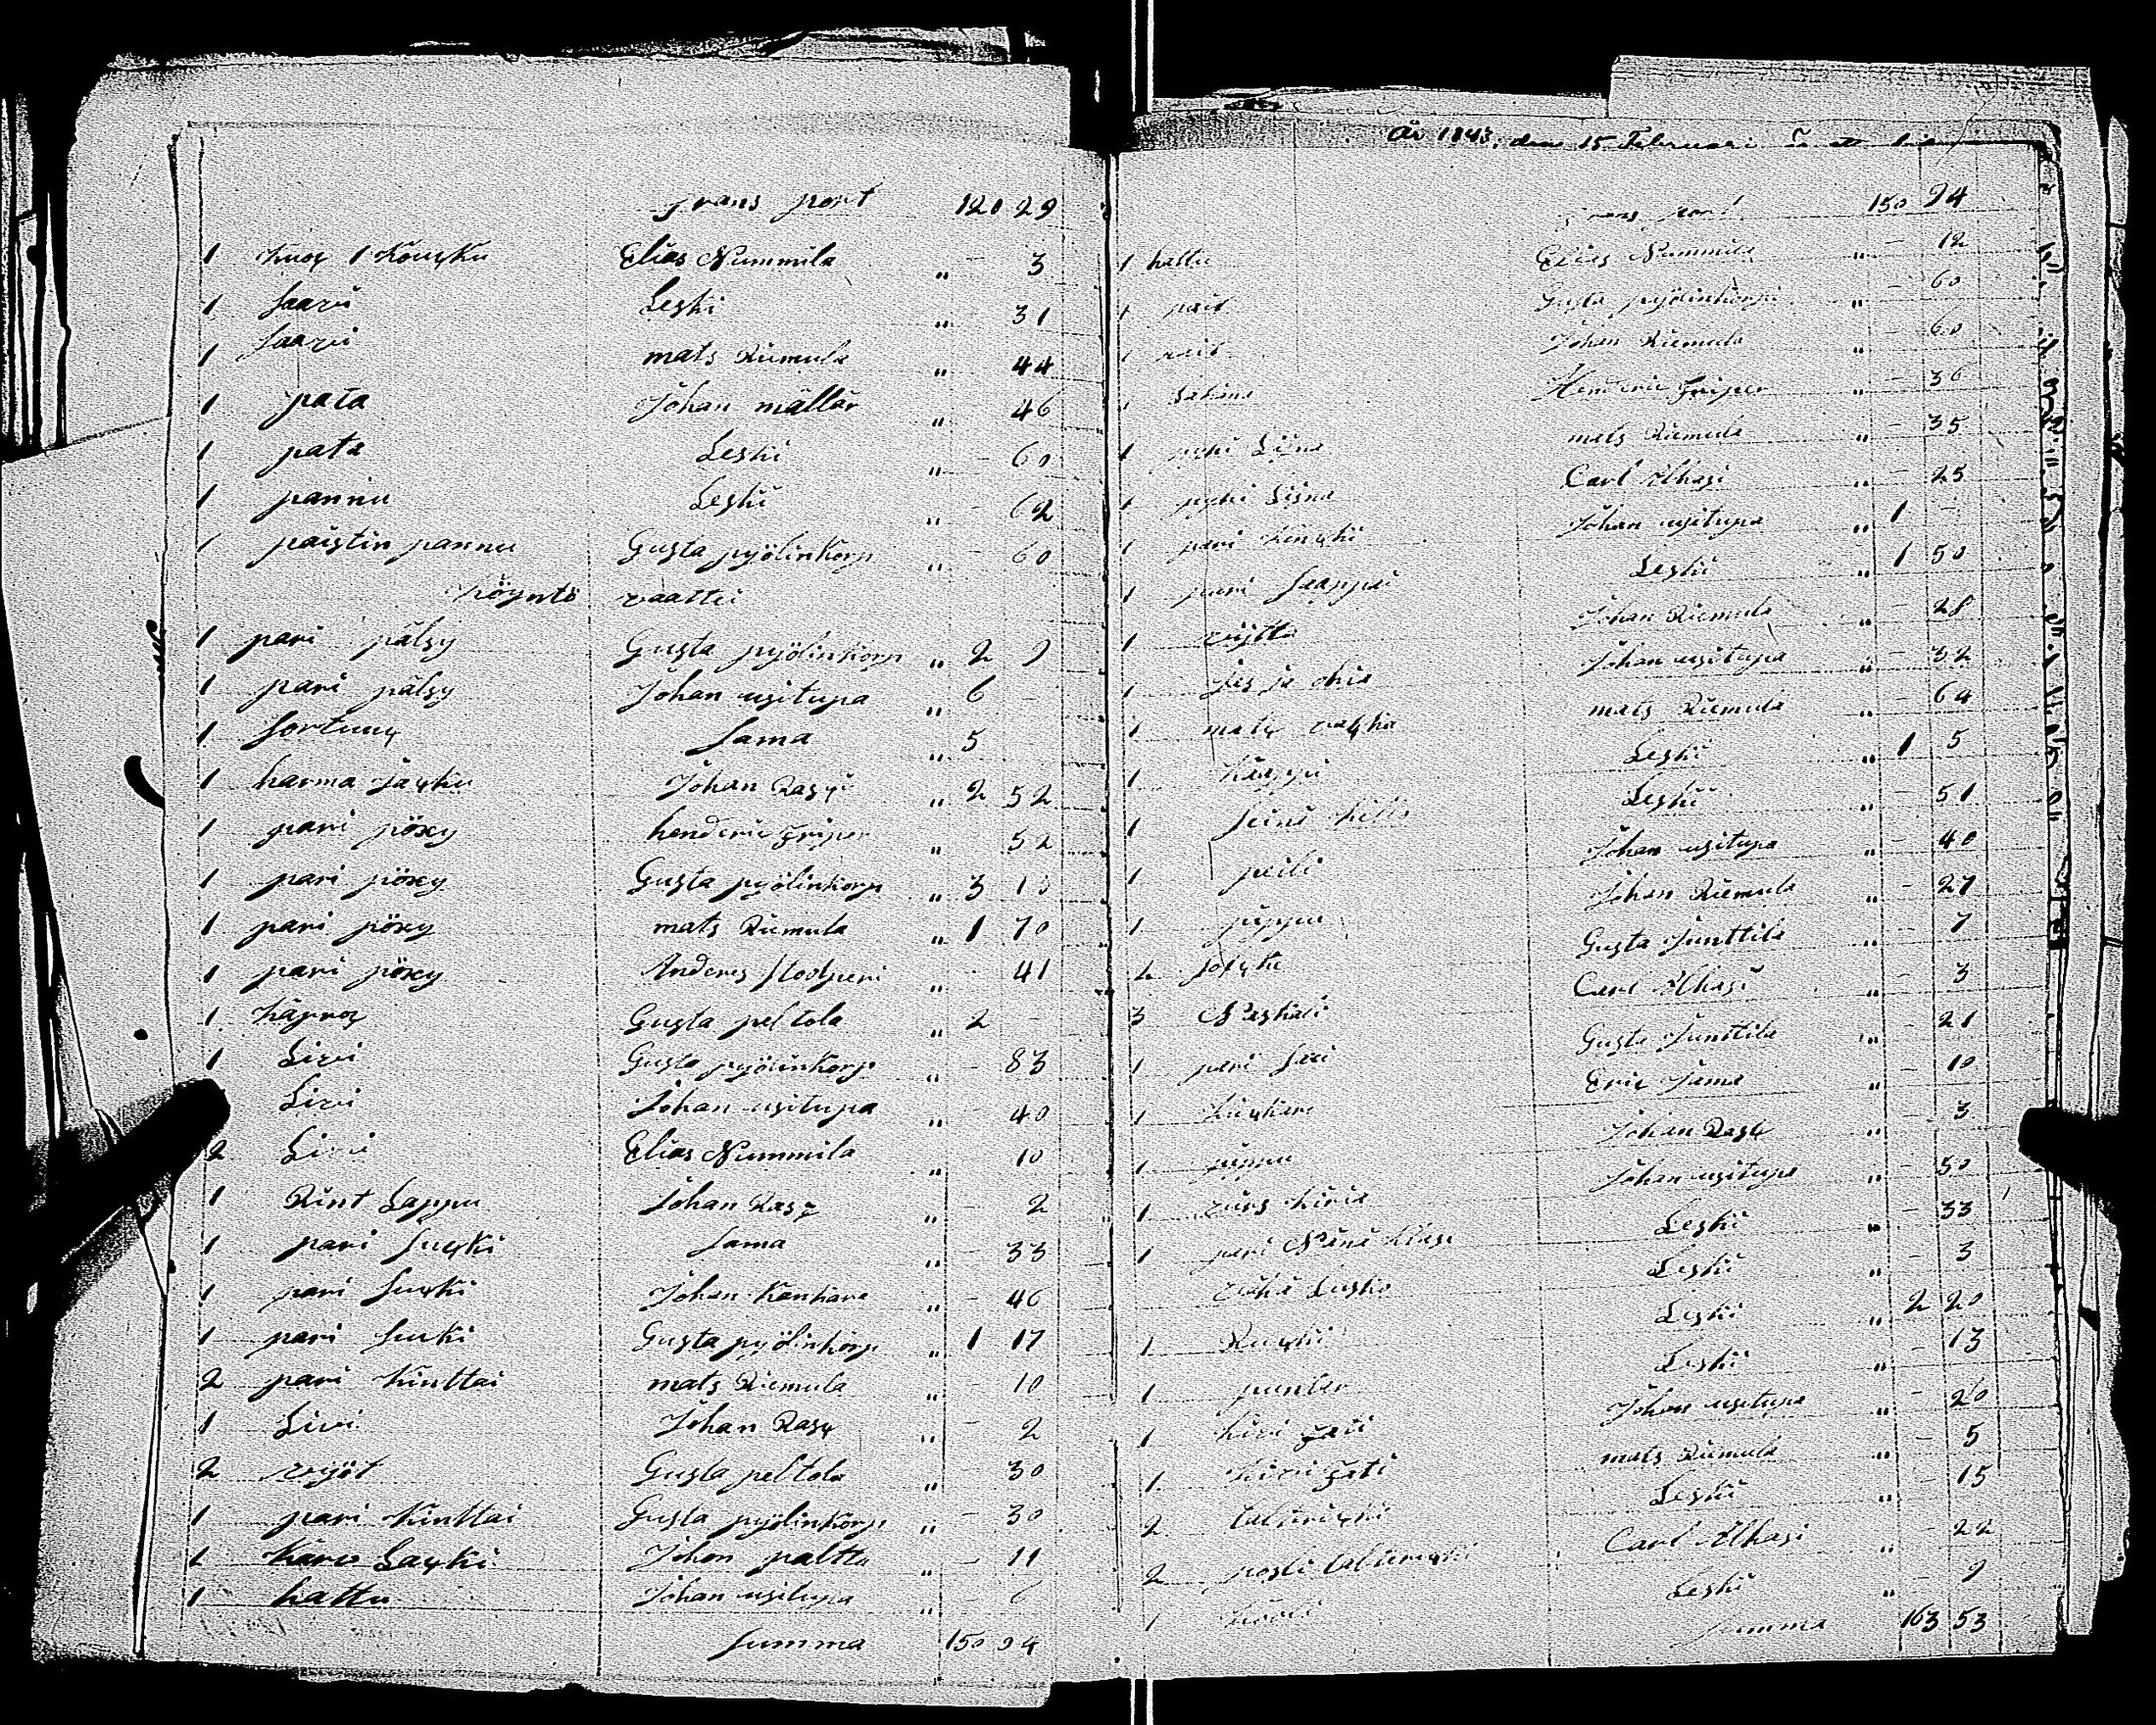 Trans port 120 29
1 Kuox 1 Kouxku Elias Nummila " - 3
1 Saavi Leski " - 31
1 Saavi mats Riemula " 44
1 pata Johan mällär " 46
1 pata Leski " - 60
1 pannu Leski " - 62
1 paistin pannu Gusta pyölinkorp " - 60
Pöyntö vaattei
1 pari pälsy Gusta pyölinkorp " 2 9
1 pari pälsy Johan usitupa " 6 -
1 Sortuux Sama " 5
1 harma Jaxku Johan Rasx " 2 52
1 pari pöxy henderic Friper " 52
1 pari pöxy Gusta pyölinkorp " 3 13
1 pari pöxy mats Riemula " 1 70
1 pari pöxy Anders Stodperi " 41
1 Käprox Gusta peltola " 2 -
1 Livi Gusta pyölinkorp " - 83
Livi Johan usitupa " - 40
2 Livi Elias Nummila " 10
1 Rint Lappu Johan Rasx " - 2
1 pari Suxki Sama " - 33
1 pari Suxki Johan Kankare " - 46
1 pari Sucki Gusta pyölinkorp " 1 17
2 pari Kinttai mats Riemula " - 10
1 Livi Johan Rasx " - 2
2 vyöt Gusta peltola " 30
1 pari Kinttai Gusta pyölinkorp " - 30
1 Karv Laxki Johan paltta " - 11
1 hattu Johan usitupa " - 6
Summa 150 94
År 1843, den 15 Februari
Trans port 150 94
1 hattu Elias Nummila " - 12
1 pait Gusta pyölinkorpi - 60
1 pait Johan Riemula " - 60
1 Sabina Henderic Friper " - 36
1 pyhi Liina mats Riemula " - 35
1 pyhi Liina Carl Alhasi " - 25
1 pari Kenxki Johan usitupa " 1 -
1 pari Saappai Leski " 1 50
1 vijtta Johan Riemula - 28
1 Jes ja ohia Johan usitupa " - 32
1 matx vaxka mats Riemula " - 64
1 Kaappi Leski " 1 5
1 Seinä Kello Leski - 51
1 peili Johan usitupa " - 40
1 pippu Johan Riemula " - 27
2 Gusta Junttila - 7
3 Naskali Carl Alhasi " - 3
1 pari Gusta Junttila " - 21
1 Eric Sama " - 10
1 pippu Johan Rasx " - 3
1 Johan usitupa - 50
1 pari Leski " - 33
Leski - 3
1 Ruxki Leski 2 20
1 puntar Leski " - 13
1 Kivi Fati Johan usitupa " - 20
1. Kivi Fati mats Riemula - 5
2 taltirixki Leski " - 15
2 posli taltirixki Carl Alhasi " - 22
1 Leski " - 9
Summa 163 53